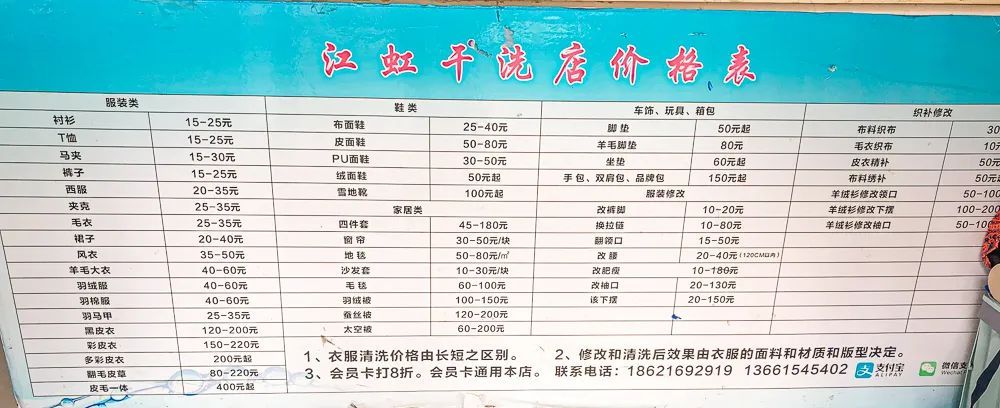 江虹干洗店价格表
服装类
衬衫 15-25元
T恤 15-25元
马夹 15-30元
裤子 15-25元
西服 20-35元
夹克 25-35元
毛衣 25-35元
裙子 20-40元
风衣 35-50元
羊毛大衣 40-60元
羽绒服 40-60元
羽棉服 40-60元
羽马甲 25-35元
黑皮衣 120-200元
彩皮衣 150-220元
多彩皮衣 200元起
翻毛皮草 80-220元
皮毛一体 400元起
鞋类
布面鞋 25-40元
皮面鞋 50-80元
PU面鞋 30-50元
绒面鞋 50元起
雪地靴 100元起
家居类
四件套 45-180元
窗帘 30-50元/块
地毯 50-80元/㎡
沙发套 10-30元/块
毛毯 60-100元
羽绒被 100-150元
蚕丝被 120-200元
太空被 60-200元
车饰、玩具、箱包
脚垫 50元起
羊毛脚垫 80元
坐垫 60元起
手包、双肩包、品牌包 150元起
服装修改
改裤脚 10-20元
换拉链 10-80元
翻领口 15-50元
改腰 20-40元(120CM以内)
改肥瘦 10-180元
改袖口 20-130元
该下摆 20-150元
织补修改
布料织布 30
毛衣织布 10元
皮衣精补 50元
布料绣补 50元起
羊绒衫修改领口 50-100
羊绒衫修改下摆 100-200
羊绒衫修改袖口 50-100
1、衣服清洗价格由长短之区别。 2、修改和清洗后效果由衣服的面料和材质和版型决定。
3、会员卡打8折。会员卡通用本店。 联系电话：18621692919 13661545402 支付宝 ALIPAY 微信支 Wechat